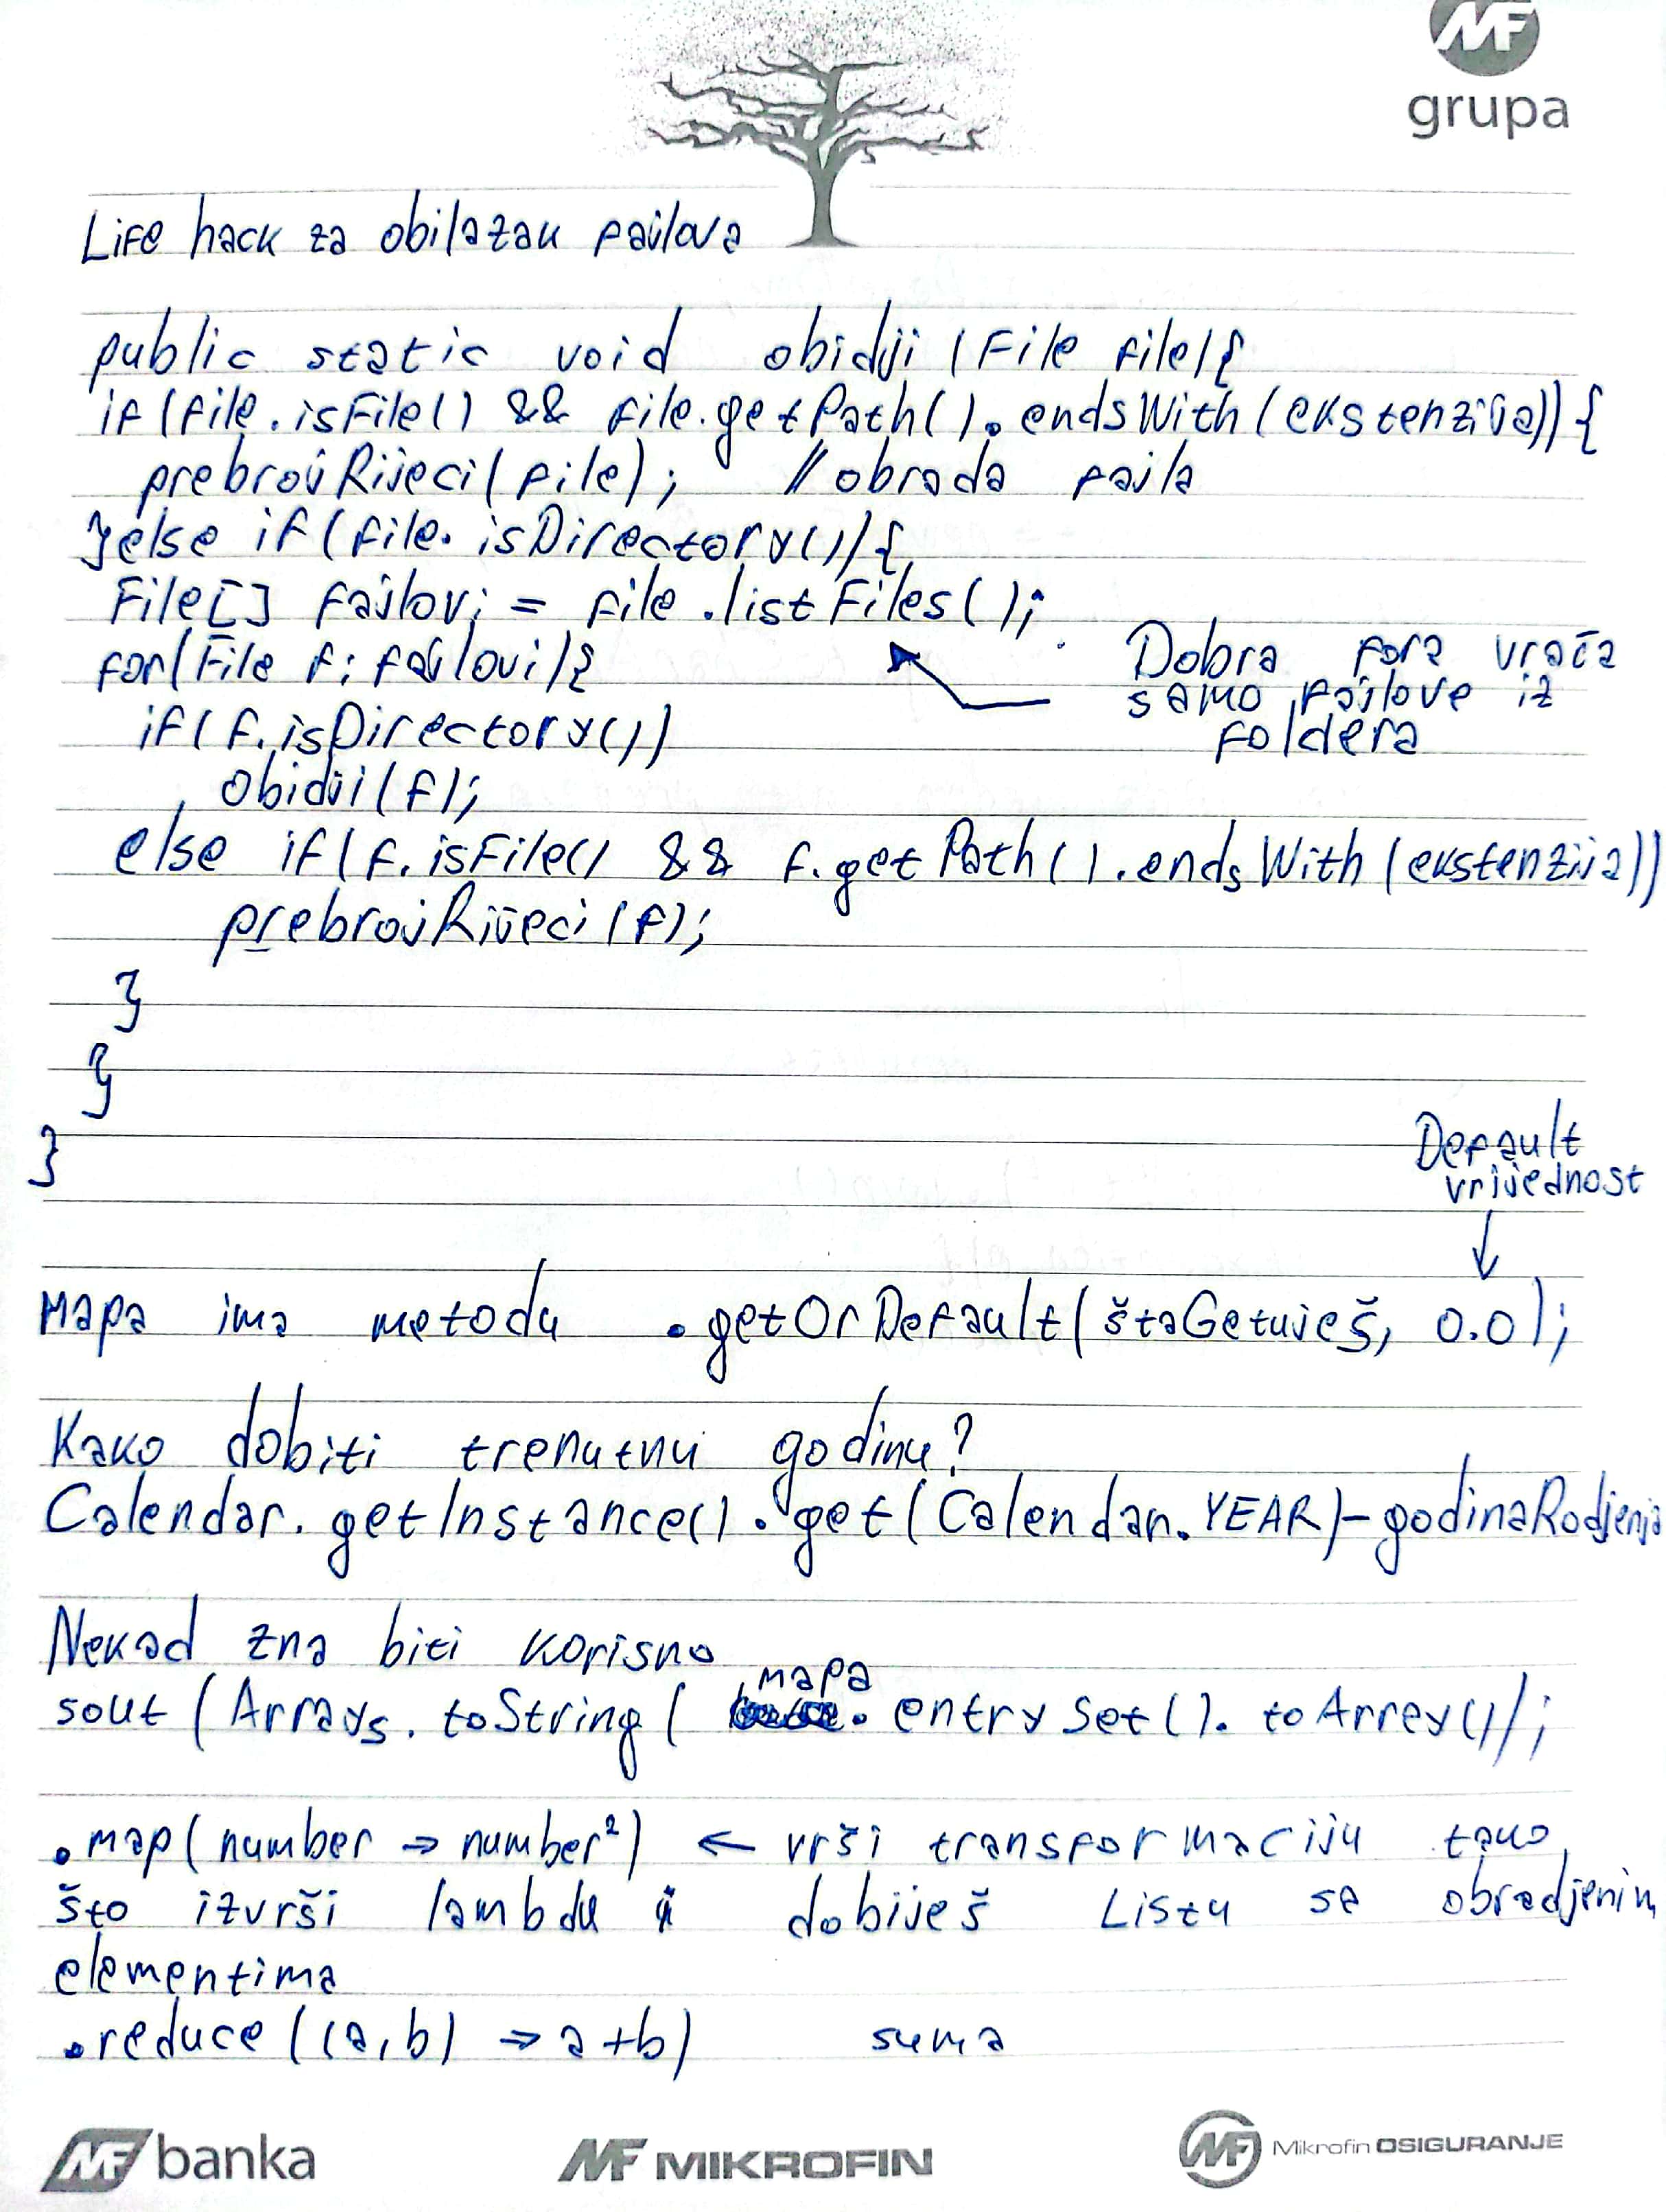 MF
grupa
Life hack za obilazak fajlova
public static void obidji (File file){
if (file.isFile() && file.getPath().endsWith(ekstenzija)) {
prebrojRijeci(file); // obrada fajla
}else if (file.isDirectory()){
File[] fajlovi = file.listFiles();
for(File f: fajlovi){
Dobra fora vraća
samo fajlove iz
foldera
if(f.isDirectory())
obidji(f);
else if(f.isFile() && f.getPath().endsWith(ekstenzija))
prebrojRijeci(f);
}
}
}
Default
vrijednost
↓
Mapa ima metodu .getOrDefault(štaGetuješ, 0.0);
Kako dobiti trenutnu godinu?
Calendar.getInstance().get(Calendar.YEAR)-godinaRodjenja
Nekad zna biti korisno
mapa
sout (Arrays.toString( . entrySet().toArrey());
.map(number → number²) ← vrši transformaciju tako
što izvrši lambdu i dobiješ Listu sa obradjenim
elementima
.reduce((a,b) → a+b) suma
MF banka
MF MIKROFIN
MF Mikrofin OSIGURANJE